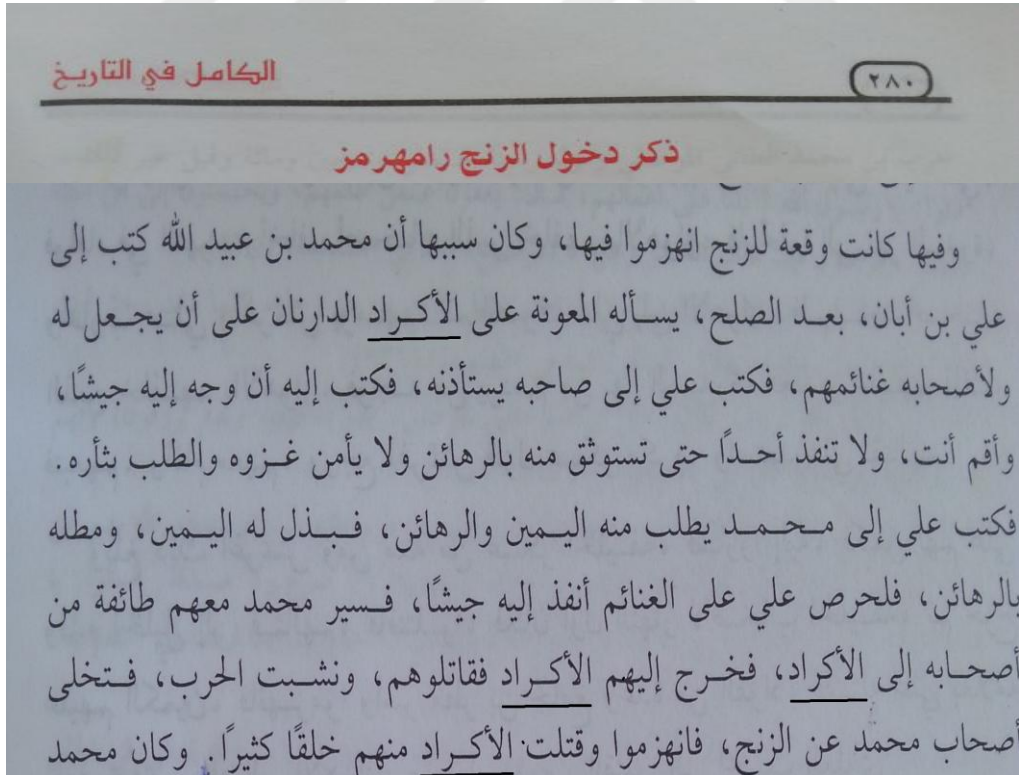 الكامل في التاريخ
٢٨٠
ذكر دخول الزنج رامهرمز
وفيها كانت وقعة للزنج انهزموا فيها، وكان سببها أن محمد بن عبيد الله كتب إلى
علي بن أبان، بعـد الصلح، يسـأله المعونة على الأكـراد الدارنان على أن يجـعل له
ولأصحابه غنائمهم، فكتب علي إلى صاحبه يستأذنه، فكتب إليه أن وجه إليه جيشًا،
وأقم أنت، ولا تنفذ أحـدًا حتى تستوثق منه بالرهائن ولا يأمن غـزوه والطلب بثأره.
فكتب علي إلى مـحـمـد يطلب منه اليـمين والرهائن، فـبـذل له اليـمين، ومطله
بالرهائن، فلحرص علي على الغنائم أنفذ إليه جيشًا، فـسير محمد معهم طائفة من
أصحـابه إلى الأكراد، فخـرج إليهم الأكـراد فقاتلوهم، ونشـبت الحرب، فـتخلى
أصحاب محمد عن الزنج، فانهزموا وقتلت الأكـراد منهم خلقًا كثيرًا. وكان محمد